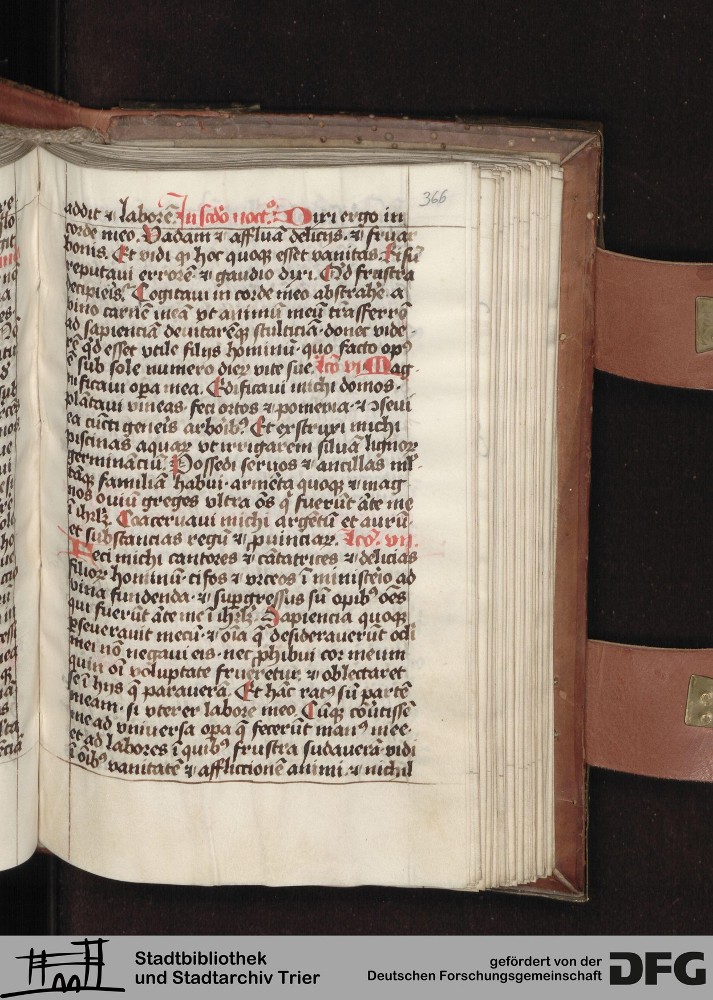 366
addit ⁊ laborē. In scdō noct.º Dixi ergo in
corde meo. Vadam ⁊ affluā delicijs. ⁊ fruar
bonis. Et vidi ꝙ hoc quoqꝫ esset vanitas. Risū
reputaui errorē. ⁊ gaudio dixi. Qd frustra
decipieris. Cogitaui in corde meo abstrahe᷑ a
vino carnē meā vt animū meū trāsferrē
ad sapienciā deuitarēqꝫ stulticiā. donec vide-
rē qd esset vtile filijs hominū. quo facto opꝰ
ē sub sole numero dieꝝ vite sue. lcō vi. Mag-
nificaui opa mea. Edificaui michi domos.
plātaui vineas. feci ortos ⁊ pomeria. ⁊ ꝯseui
ea cūcti geneis arboibꝰ. Et exstruxi michi
piscinas aquaꝝ vt irrigarem siluā lignoꝝ
germinanciū. Possedi seruos ⁊ ancillas ml-
tāqꝫ familiā habui. armēta quoqꝫ ⁊ mag-
nos ouiū greges vltra ōs q̄ fuerūt āte me
ī ihrlꝫ. Coaceruaui michi argētū et aurū.
et substancias regū ⁊ ꝓuinciaꝝ. lcō. vii.
Feci michi cantores ⁊ cātatrices ⁊ delicias
filioꝝ hominū. cifos ⁊ vrceos ī ministeio ad
vina fundenda. ⁊ supgressus sū opibꝰ oēs
qui fuerūt āte me ī ihrlꝫ. Sapiencia quoqꝫ
pseuerauit mecū. ⁊ oīa q̄ desiderauerūt oclī
mei nō negaui eis. nec ꝓhibui cor meum
quin oī voluptate frueretur ⁊ oblectaret
se ī hijs q̄ parauerā. Et hāc ratꝰ sū partē
meam. si vterer labore meo. Cūqꝫ cōutissē
me ad vniuersa opa q̄ fecerūt manꝰ mee.
et ad labores ī quibꝰ frustra sudauerā. vidi
ī oībꝰ vanitatē ⁊ affliccionē animi. ⁊ nichil
Stadtbibliothek
und Stadtarchiv Trier
gefördert von der
Deutschen Forschungsgemeinschaft
DFG